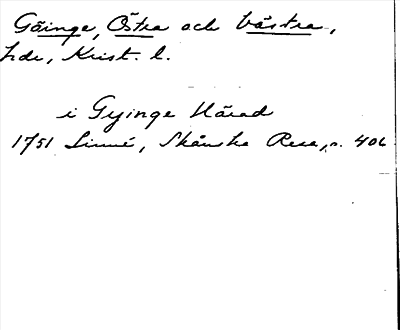 Göinge, Östra och Västra,
hde, Krist. l.
i Gyinge Härad
1751 Linné, Skånska Resa, s. 406